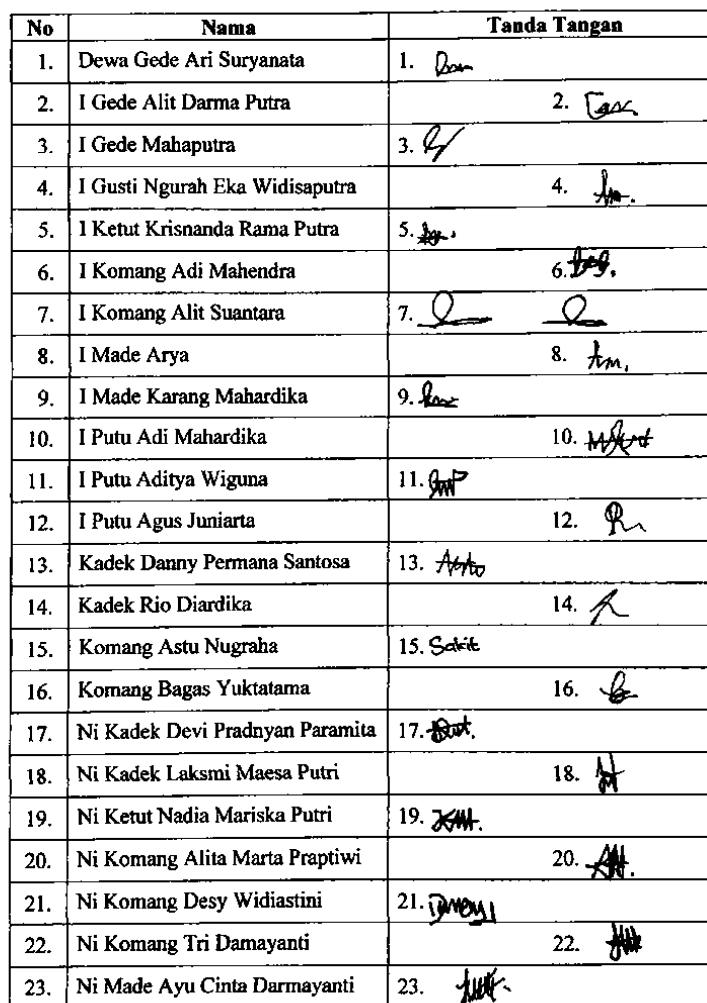 No Nama Tanda Tangan
1. Dewa Gede Ari Suryanata 1.
2. I Gede Alit Darma Putra 2.
3. I Gede Mahaputra 3.
4. I Gusti Ngurah Eka Widisaputra 4.
5. I Ketut Krisnanda Rama Putra 5.
6. I Komang Adi Mahendra 6.
7. I Komang Alit Suantara 7.
8. I Made Arya 8.
9. I Made Karang Mahardika 9.
10. I Putu Adi Mahardika 10.
11. I Putu Aditya Wiguna 11.
12. I Putu Agus Juniarta 12.
13. Kadek Danny Permana Santosa 13.
14. Kadek Rio Diardika 14.
15. Komang Astu Nugraha 15. Sakit
16. Komang Bagas Yuktatama 16.
17. Ni Kadek Devi Pradnyan Paramita 17.
18. Ni Kadek Laksmi Maesa Putri 18.
19. Ni Ketut Nadia Mariska Putri 19.
20. Ni Komang Alita Marta Praptiwi 20.
21. Ni Komang Desy Widiastini 21.
22. Ni Komang Tri Damayanti 22.
23. Ni Made Ayu Cinta Darmayanti 23.